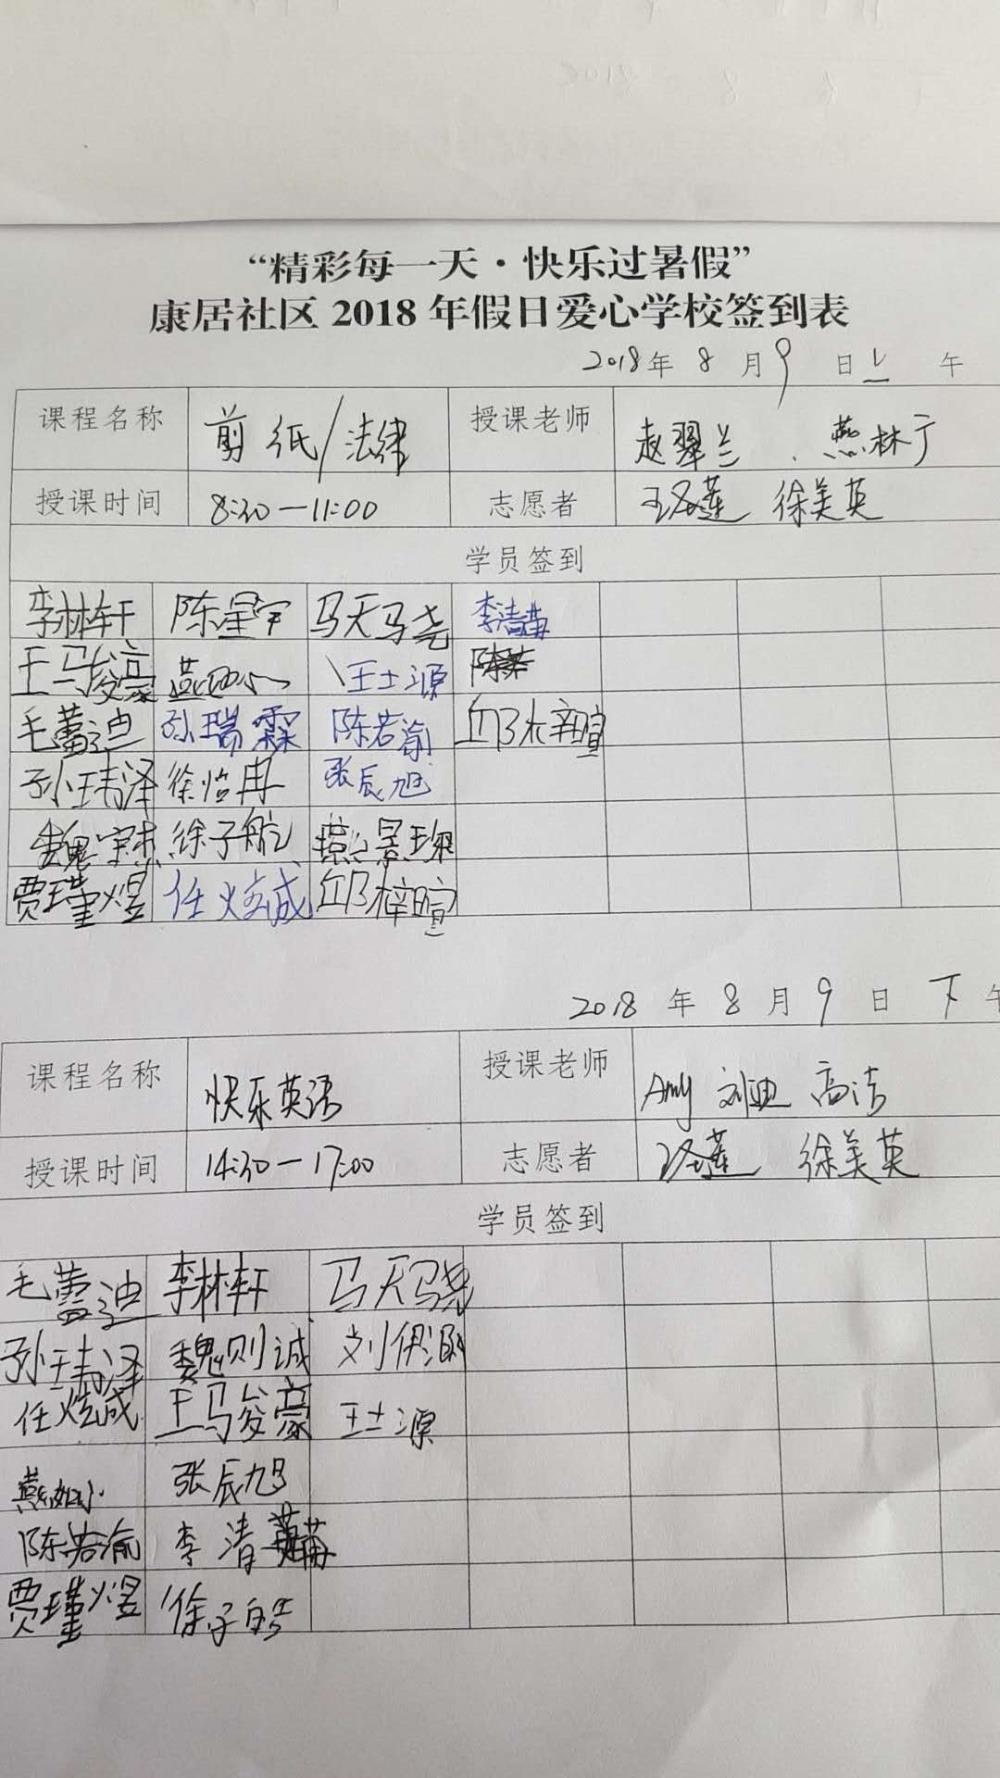 “精彩每一天·快乐过暑假”
康居社区 2018 年假日爱心学校签到表
2018年 8 月 9 日 上 午
课程名称 剪纸/法律 授课老师 赵翠兰 燕林广
授课时间 8:30—11:00 志愿者 徐美英
学员签到
李林轩 陈星宇 马天骁 李清苗
王马俊豪 王士源
毛蕾迪 孙瑞霖 陈若渝 邱梓暄
孙玮泽 徐怡冉 张辰旭
徐子航 燕景琛
贾瑾煜 任炫诚 邱梓暄
2018 年 8 月 9 日 下 午
课程名称 快乐英语 授课老师 Amy 刘迪 高洁
授课时间 14:30—17:00 志愿者 徐美英
学员签到
毛蕾迪 李林轩 马天骁
孙玮泽 魏则诚
任炫诚 王马俊豪 王士源
张辰旭
陈若渝 李清苗
贾瑾煜 徐子皓